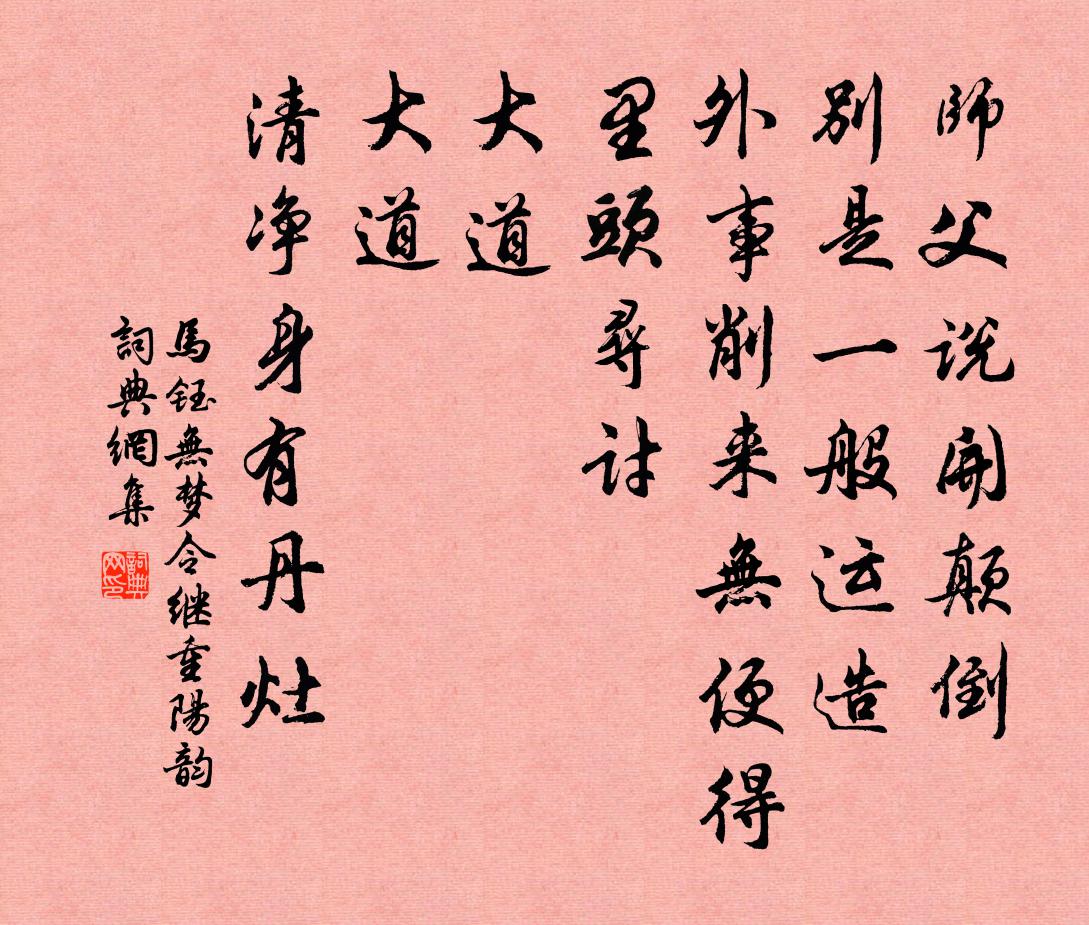 師父说開颠倒
别是一般运造
外事削来無便得
里頭尋討
大道
大道
清净身有丹灶
馬钰無梦令继重陽韵
詞典網集
詞典网印